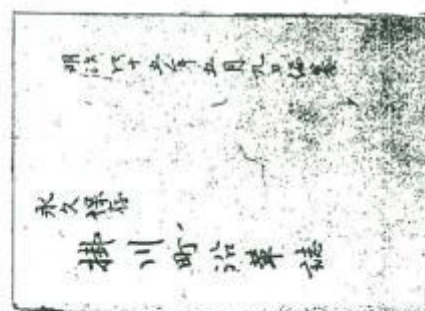 明治四十五年五月九日編纂
永久保存
掛川町沿革誌